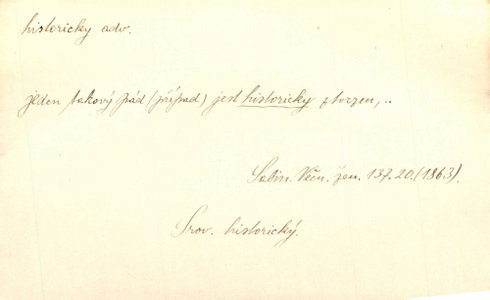 historicky adv.
jeden takový pád (případ) jest historicky stvrzen,..
Sabin. Věčn. žen. 137.20.(1863).
Srov. historický.